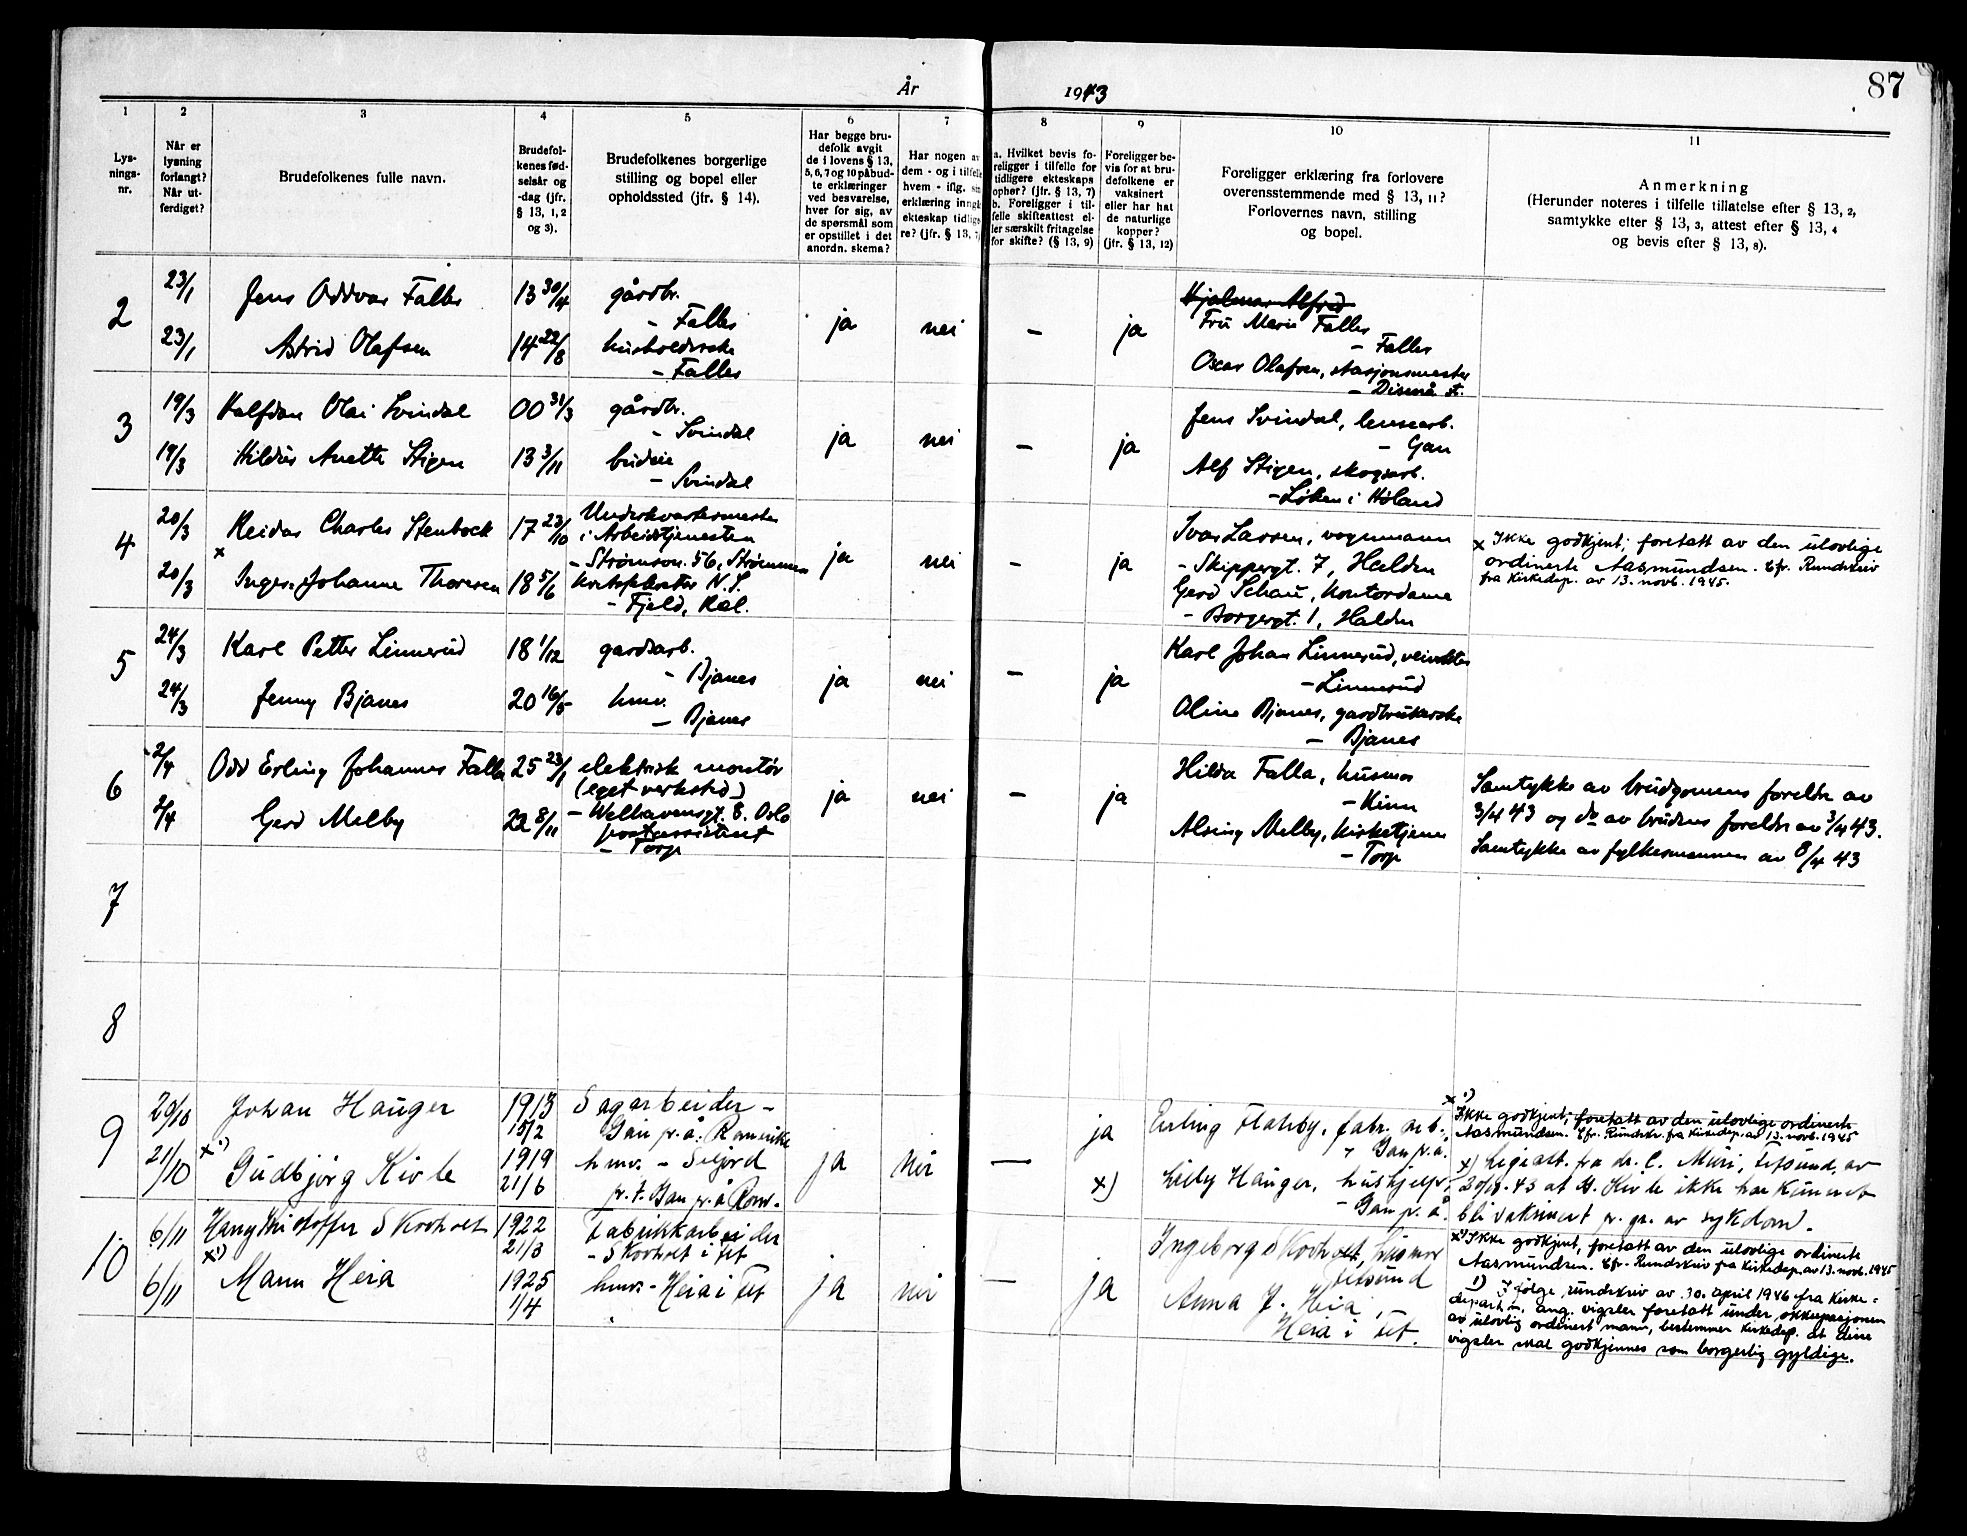 87
År 1943
1
Lys-
nings-
nr.
2
Når er
lysning
forlangt?
Når ut-
ferdiget?
3
Brudefolkenes fulle navn.
4
Brudefol-
kenes fød-
selsår og
-dag (jfr.
§ 13, 1, 2
og 3).
5
Brudefolkenes borgerlige
stilling og bopel eller
opholdssted (jfr. § 14).
6
Har begge bru-
defolk avgit
de i lovens § 13,
5, 6, 7 og 10 påbud-
te erklæringer
ved besvarelse,
hver for sig, av
de spørsmål som
er opstillet i det
anordn. skema?
7
Har nogen av
dem - og i tilfelle
hvem - iflg. sin
erklæring inngått
ekteskap tidlige-
re? (jfr. § 13, 7)
8
a. Hvilket bevis fo-
religger i tilfelle for
tidligere ekteskaps
ophør? (jfr. § 13, 7)
b. Foreligger i til-
felle skifteattest el-
ler særskilt fritagelse
for skifte? (§ 13, 9)
9
Foreligger be-
vis for at bru-
defolkene er
vaksinert
eller har hat
de naturlige
kopper?
(jfr. § 13, 12)
10
Foreligger erklæring fra forlovere
overensstemmende med § 13, 11?
Forlovernes navn, stilling
og bopel.
11
Anmerkning
(Herunder noteres i tilfelle tillatelse efter § 13, 2,
samtykke efter § 13, 3, attest efter § 13, 4
og bevis efter § 13, 8).
2
23/1
Jens Oddvar Falles
13 30/4
gårdbr.
- Falles
23/1
Astrid Olafsen
14 22/8
husholderske
- Falles
ja
nei
-
ja
Hjalmar Alfred
Fru Marie Falles
- Falles
Oscar Olafsen, stasjonsmester
- Disenå st.
3
19/3
Halfdan Olai Svindal
00 31/3
gårdbr.
- Svindal
19/3
Hildur Anette Stigen
13 3/11
budeie
- Svindal
ja
nei
-
ja
Jens Svindal, lensearb.
- Gan
Alf Stigen, skogsarb.
- Løken i Höland
4
20/3
Reidar Charles Stenbock
17 23/10
Underkvartermester
i Arbeidstjenesten
- Strømsvn. 56, Strømmen
x
20/3
Inger-Johanne Thoresen
18 5/6
N.S.
- Fjeld, Ral.
ja
nei
-
ja
Ivar Larsen, vognmann
- Skippergt. 7, Halden
Gerd Schau, kontordame
- Borgergt. 1, Halden
x Ikke godkjent; foretatt av den ulovlige
ordinerte Aasmundsen. Cfr. Rundskriv
fra Kirkedep. av 13. novb. 1945.
5
24/3
Karl Petter Linnerud
18 1/12
gardsarb.
- Bjanes
24/3
Jenny Bjanes
20 16/5
hmv.
- Bjanes
ja
nei
-
ja
Karl Johan Linnerud, veivokter
- Linnerud
Oline Bjanes, gardbrukerske
- Bjanes
6
2/4
Odd Erling Johannes Falla
25 23/1
elektrisk montör
(eget verksted)
- Welhavensgt. 8. Oslo
2/4
Gerd Melby
22 8/11
postassistent
- Torp
ja
nei
-
ja
Hilda Falla, husmor
- Kinn
Alsing Melby, kirketjener
- Torp
Samtykke av brudgommens foreldre av
3/4 43 og do av brudens foreldre av 3/4 43.
Samtykke av fylkesmannen av 8/4 43
7
8
9
20/10
Johan Hauger
1913
15/2
Sagarbeider -
Gan p.å. Romerike
21/10
x 1)
Gudbjörg Kivle
1919
21/6
hmv. - Seljord
p.t. Gan p.å Rom.
ja
nei
-
ja
x)
Erling Flateby, fabr. arb.,
Gan p.å.
Lilly Hauger, hushjelp,
- Gan p.å.
x 1)
Ikke godkjent; foretatt av den ulovlige ordinerte
Aasmundsen. Cfr. Rundskr. fra Kirkedep. av 13. novb. 1945
x) Legeatt. fra dr. C. Muri, Fetsund, av
20/10.43 at G. Kivle ikke har kunnet
bli vaksinert p. gr. av sykdom.
10
6/11
Harry Kristoffer Skovholt
1922
21/3
Fabrikkarbeider
- Skovholt i Fet
x 1)
6/11
Mann Heia
1925
1/4
hmv. - Heia i Fet
ja
nei
-
ja
Ingeborg Skovholt, husmor
Fetsund
Anna J. Heia,
Heia i Fet.
x 1) Ikke godkjent, foretatt av den ulovlige ordinerte
Aasmundsen. Cfr. Rundskriv fra Kirkedep. av 13. novb. 1945
1) I følge rundskriv av 30. april 1946 fra Kirke-
depart., ang. vigsler foretatt under okkupasjonen
av ulovlig ordinert mann, bestemmer Kirkedep. at disse
vigsler skal godkjennes som borgerlig gyldige.